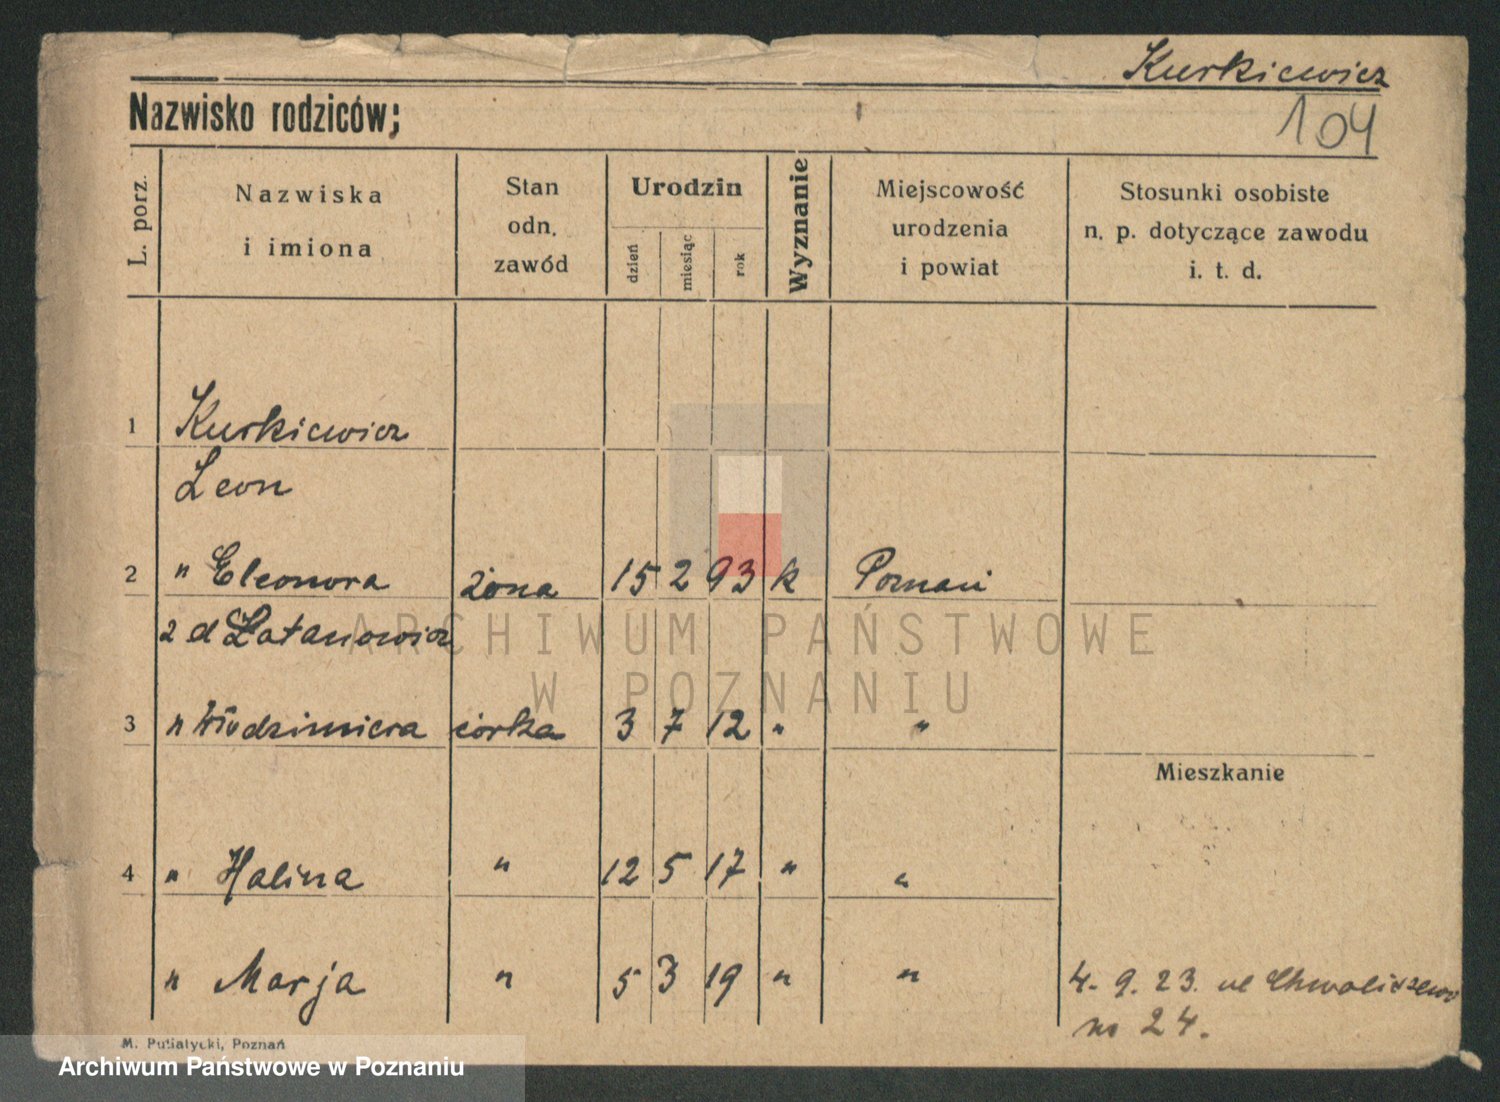 Kurkiewicz
Nazwisko rodziców;
104
L. porz.
Nazwiska
i imiona
Stan
odn.
zawód
Urodzin
dzień
miesiąc
rok
Wyznanie
Miejscowość
urodzenia
i powiat
Stosunki osobiste
n. p. dotyczące zawodu
i. t. d.
1 Kurkiewicz
Leon
2 " Eleonora żona 15 2 93 k Poznań
z d Łatanowicz
3 " Włodzimiera córka 3 7 12 " "
Mieszkanie
4 " Halina " 12 5 17 " "
" Marja " 5 3 19 " "
4. 9. 23. ul Chwaliszewo
no 24.
M. Putiatycki, Poznań
ARCHIWUM PAŃSTWOWE
W POZNANIU
Archiwum Państwowe w Poznaniu